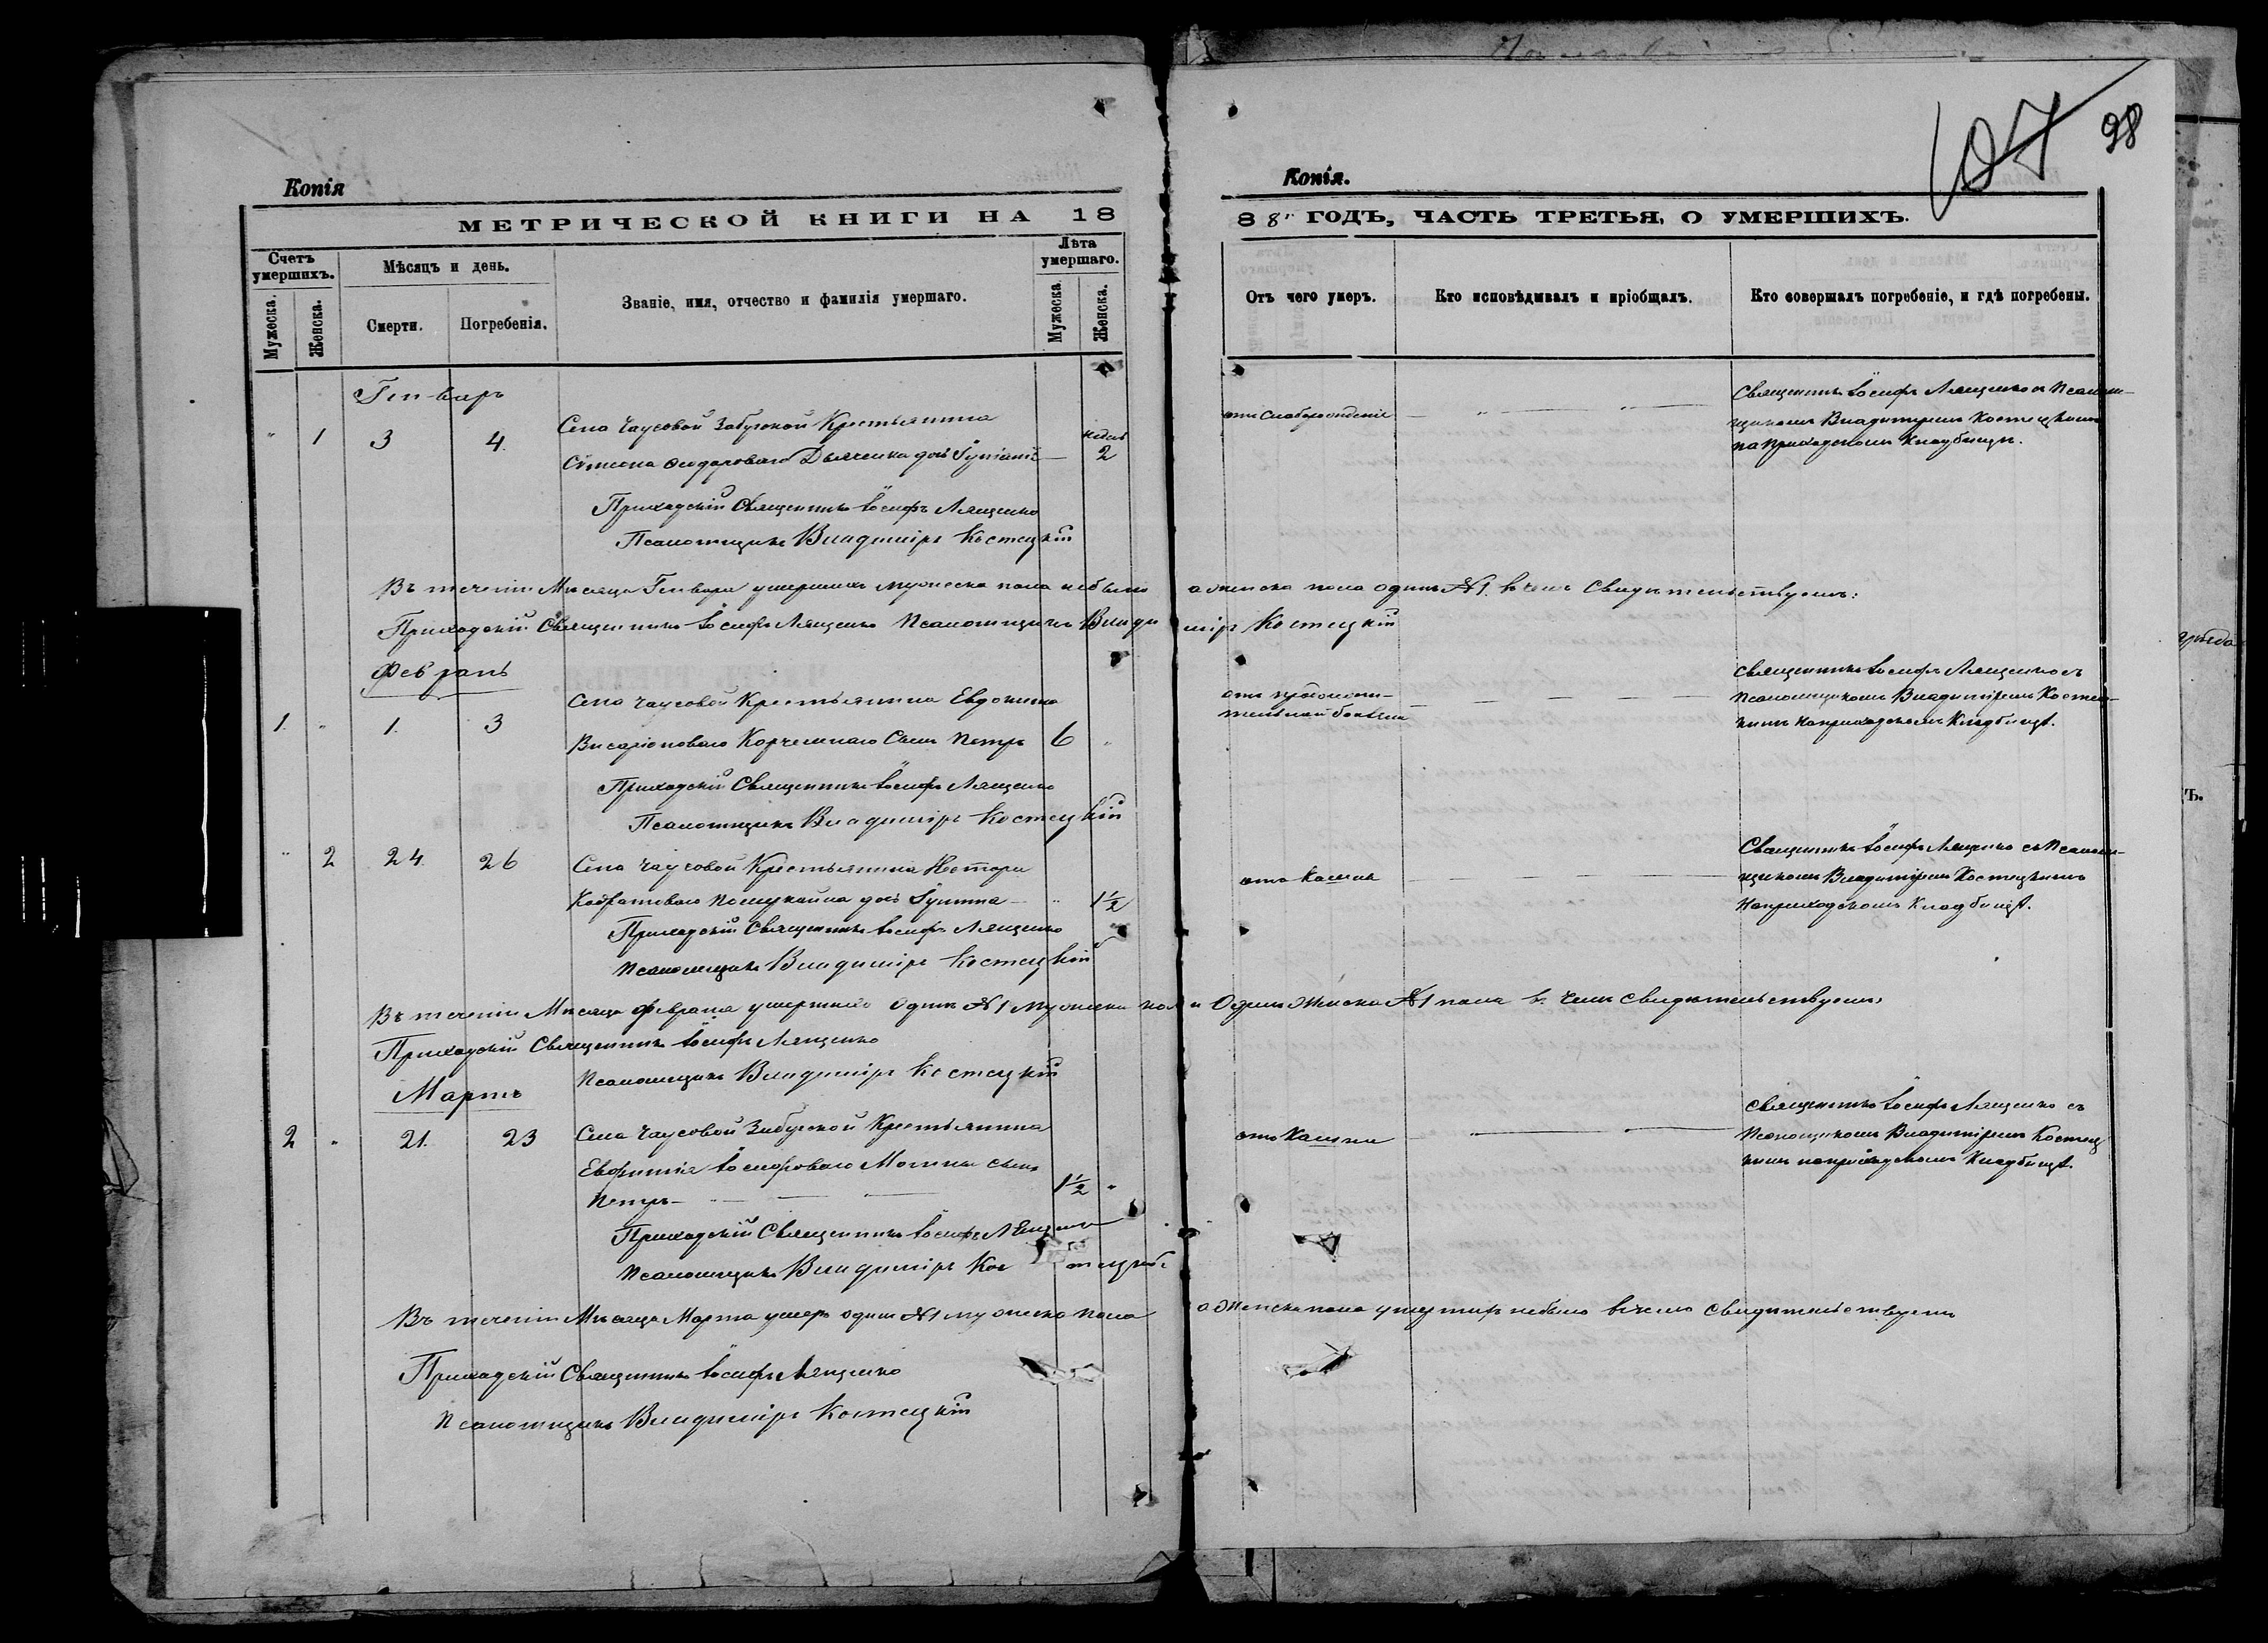 107 98
Копія
МЕТРИЧЕСКОЙ КНИГИ НА 18
Счетъ умершихъ.
Мужеска.
Женска.
Мѣсяцъ и день.
Смерти.
Погребенія.
Званіе, имя, отчество и фамилія умершаго.
Лѣта умершаго.
Мужеска.
Женска.
Генварь
" 1 3 4.
Села Чаусовой Забугской Крестьянина
недель
Симеона Ѳеодорова Дьяченка дочь 2
Приходскій Священникъ Іосифъ Лященко
Псаломщикъ Владиміръ Костецкій
Въ теченіи Мѣсяца Генваря умершихъ мужеска пола небыло
Приходскій Священникъ Іосифъ Лященко Псаломщикъ Влади
Февраль
Села Чаусовой Крестьянина Евдокима
1. " 1. 3
Висаріонова Корчемнаго Сынъ Петръ 6 "
Приходскій Священникъ Іосифъ Лященко
Псаломщикъ Владиміръ Костецкій
" 2 24. 26 Села Чаусовой Крестьянина Нестора
Кодратова дочь " 1½
Приходскій Священникъ Іосифъ Лященко
Псаломщикъ Владиміръ Костецкій
Въ теченіи Мѣсяца Февраля умершихъ одинъ №1 мужеска пол
Приходскій Священникъ Іосифъ Лященко
Псаломщикъ Владиміръ Костецкій
Мартъ
2 " 21. 23 Села Чаусовой Забугской Крестьянина
Евфимія Іосифова сынъ
Петръ 1½ "
Приходскій Священникъ Іосифъ Лященко
Псаломщикъ Владиміръ Костецкій
Въ теченіи Мѣсяца Марта умеръ одинъ №1 мужеска пола
Приходскій Священникъ Іосифъ Лященко
Псаломщикъ Владиміръ Костецкій
Копія.
88" ГОДЪ, ЧАСТЬ ТРЕТЬЯ, О УМЕРШИХЪ.
Отъ чего умеръ.
Кто исповѣдывалъ и пріобщалъ.
Кто совершалъ погребеніе, и гдѣ погребены.
отъ
Священникъ Іосифъ Лященко с Псалом-
щикомъ Владиміромъ Костецкимъ
на приходскомъ Кладбищѣ.
а женска пола одинъ №1. в чемъ Свидѣтельствуемъ:
міръ Костецкій
отъ
тельной болезни
Священникъ Іосифъ Лященко съ
Псаломщикомъ Владиміромъ Костец-
кимъ на приходскомъ Кладбищѣ.
отъ Кашля
Священникъ Іосифъ Лященко съ Псалом-
щикомъ Владиміромъ Костецкимъ
На приходскомъ Кладбищѣ.
и Одинъ Женска №1 пола в чемъ свидѣтельствуемъ
отъ Кашля
Священникъ Іосифъ Лященко съ
Псаломщикомъ Владиміромъ Костец
кимъ на приходскомъ Кладбищѣ.
а Женска пола умершихъ небыло в чемъ свидѣтельствуемъ